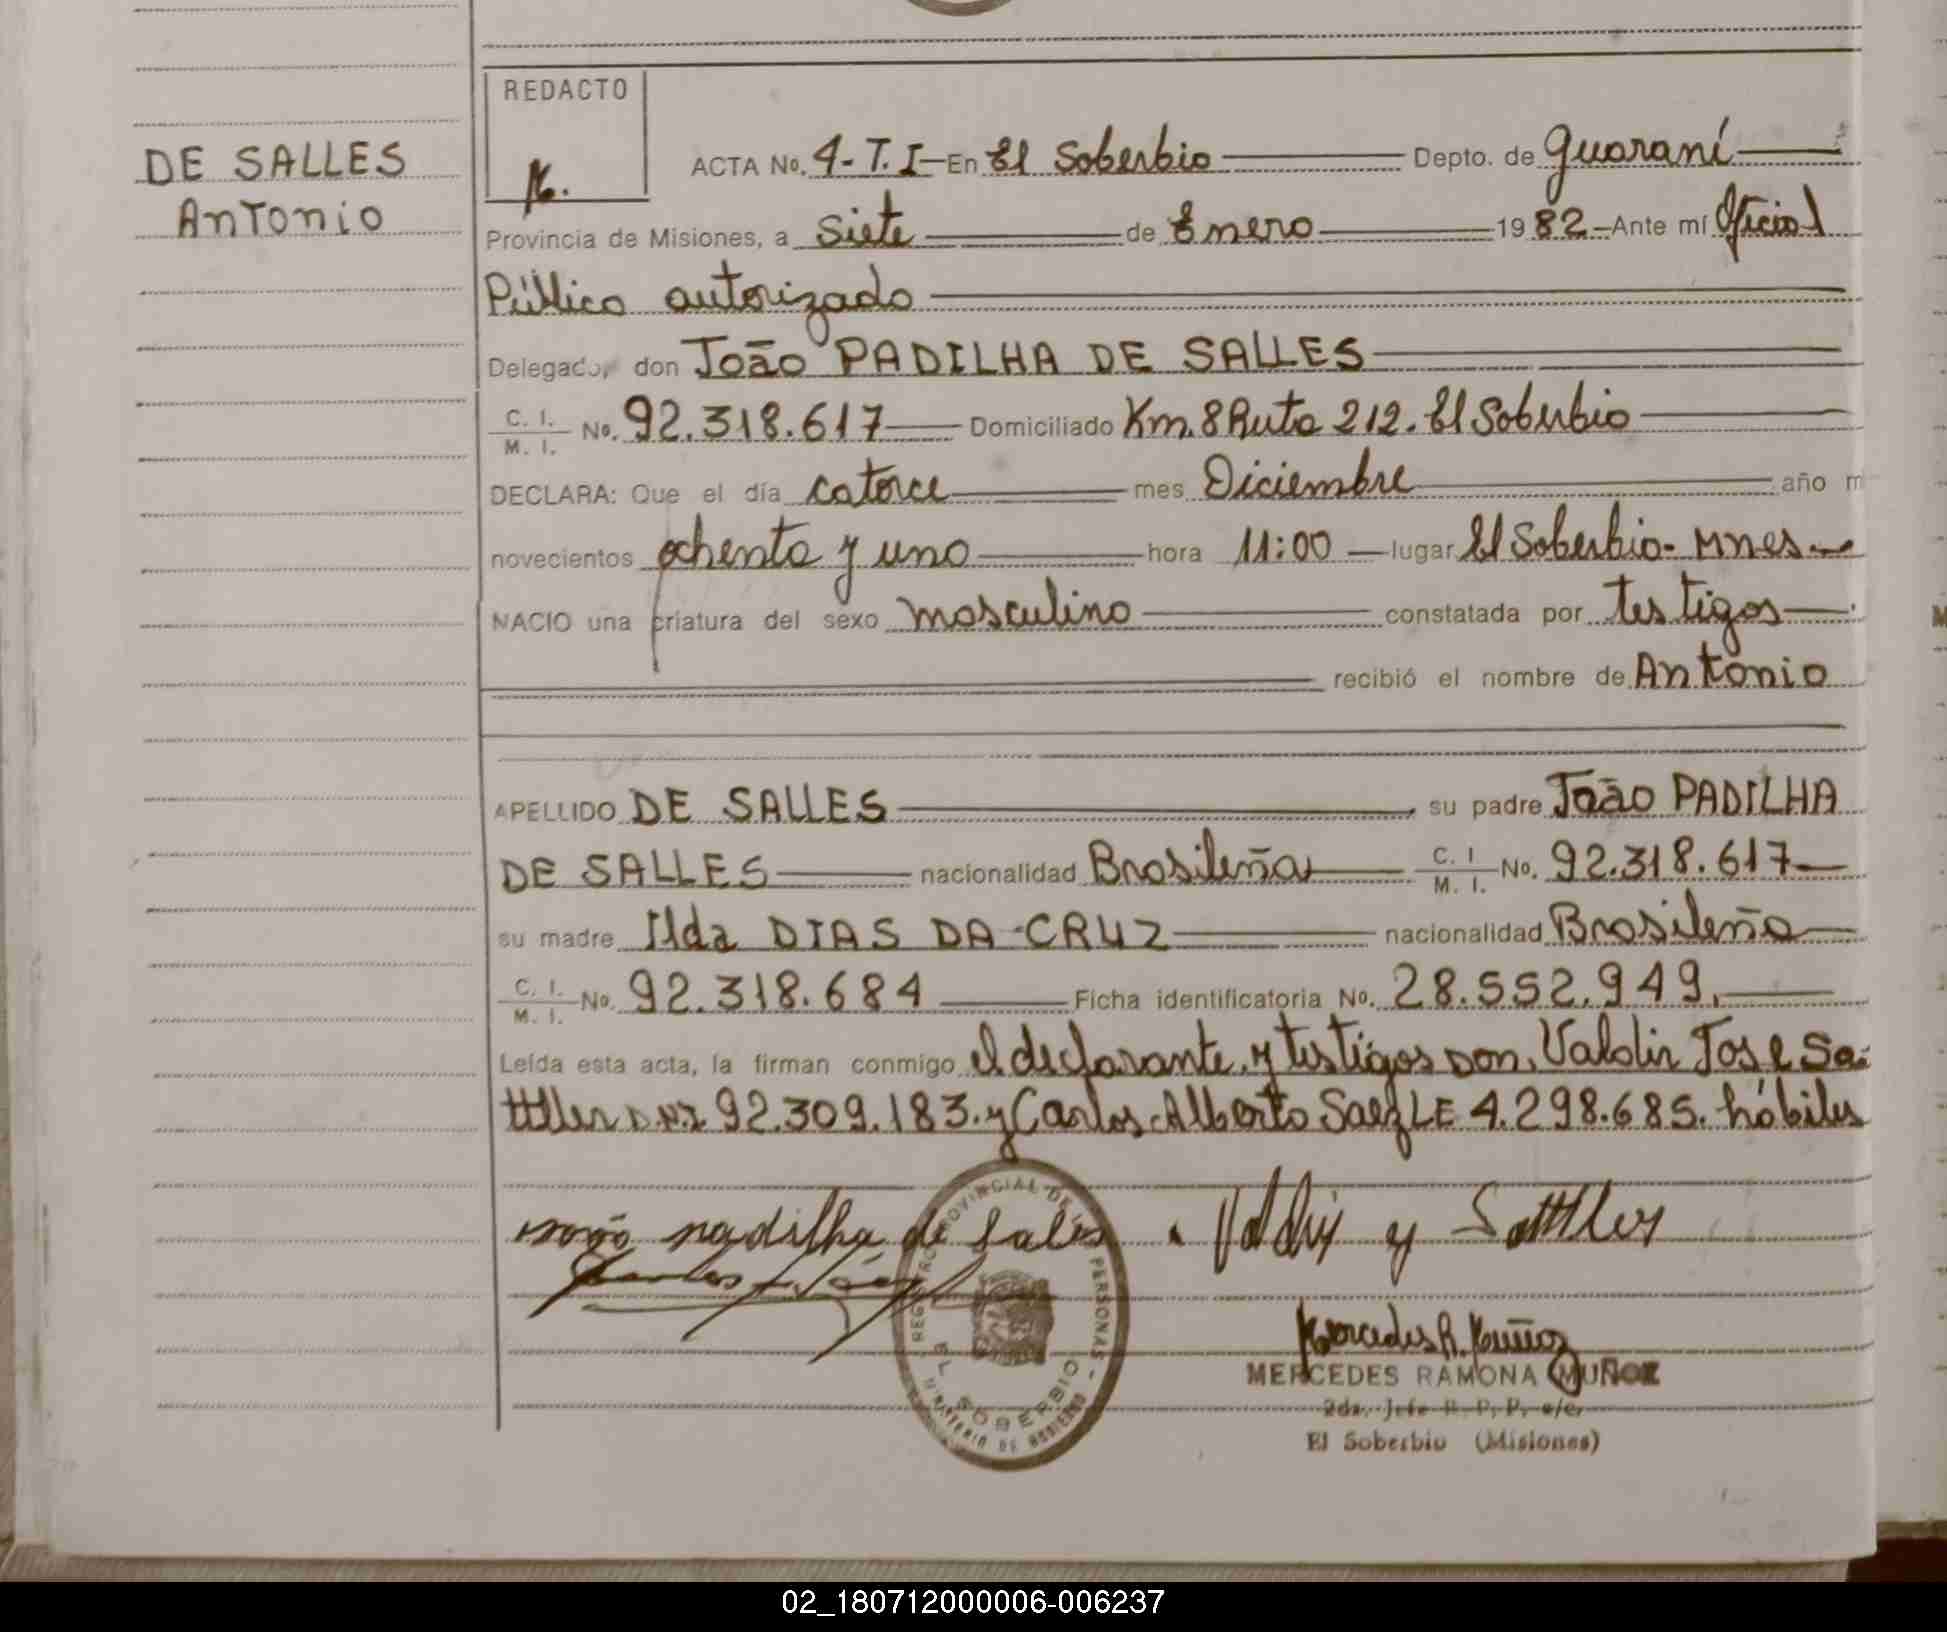 DE SALLES
Antonio
REDACTO
ACTA No. 4-T.I-En El Soberbio Depto. de Guaraní
Provincia de Misiones, a siete de Enero 1982-Ante mí Oficial
Público autorizado
Delegado, don João PADILHA DE SALLES
C. I. M. I. No. 92.318.617 Domiciliado Km. 8 Ruta 212. El Soberbio
DECLARA: Que el día catorce mes Diciembre año m
novecientos ochenta y uno hora 11:00 lugar El Soberbio- Mnes-
NACIO una criatura del sexo masculino constatada por testigos
recibió el nombre de Antonio
APELLIDO DE SALLES su padre João PADILHA
DE SALLES nacionalidad Brasileña C. I M. I. No. 92.318.617
su madre Ilda DIAS DA CRUZ nacionalidad Brasileña
C. I. M. I. No. 92.318.684 Ficha identificatoria No. 28.552.949.
Leída esta acta, la firman conmigo el declarante y testigos don. Valdir Jose Sa-
tttler D.N.I 92.309.183. y Carlos Alberto Saez LE 4.298.685. hábiles
João padilha de Sales Valdir y Sattler
Carlos A. Sáez
REGISTRO PROVINCIAL DE LAS PERSONAS -
EL SOBERBIO
MINISTERIO DE GOBIERNO
Mercedes R. Muñoz
MERCEDES RAMONA MUÑOZ
2da. Jefe R. P. P. a/c.
El Soberbio (Misiones)
02_180712000006-006237